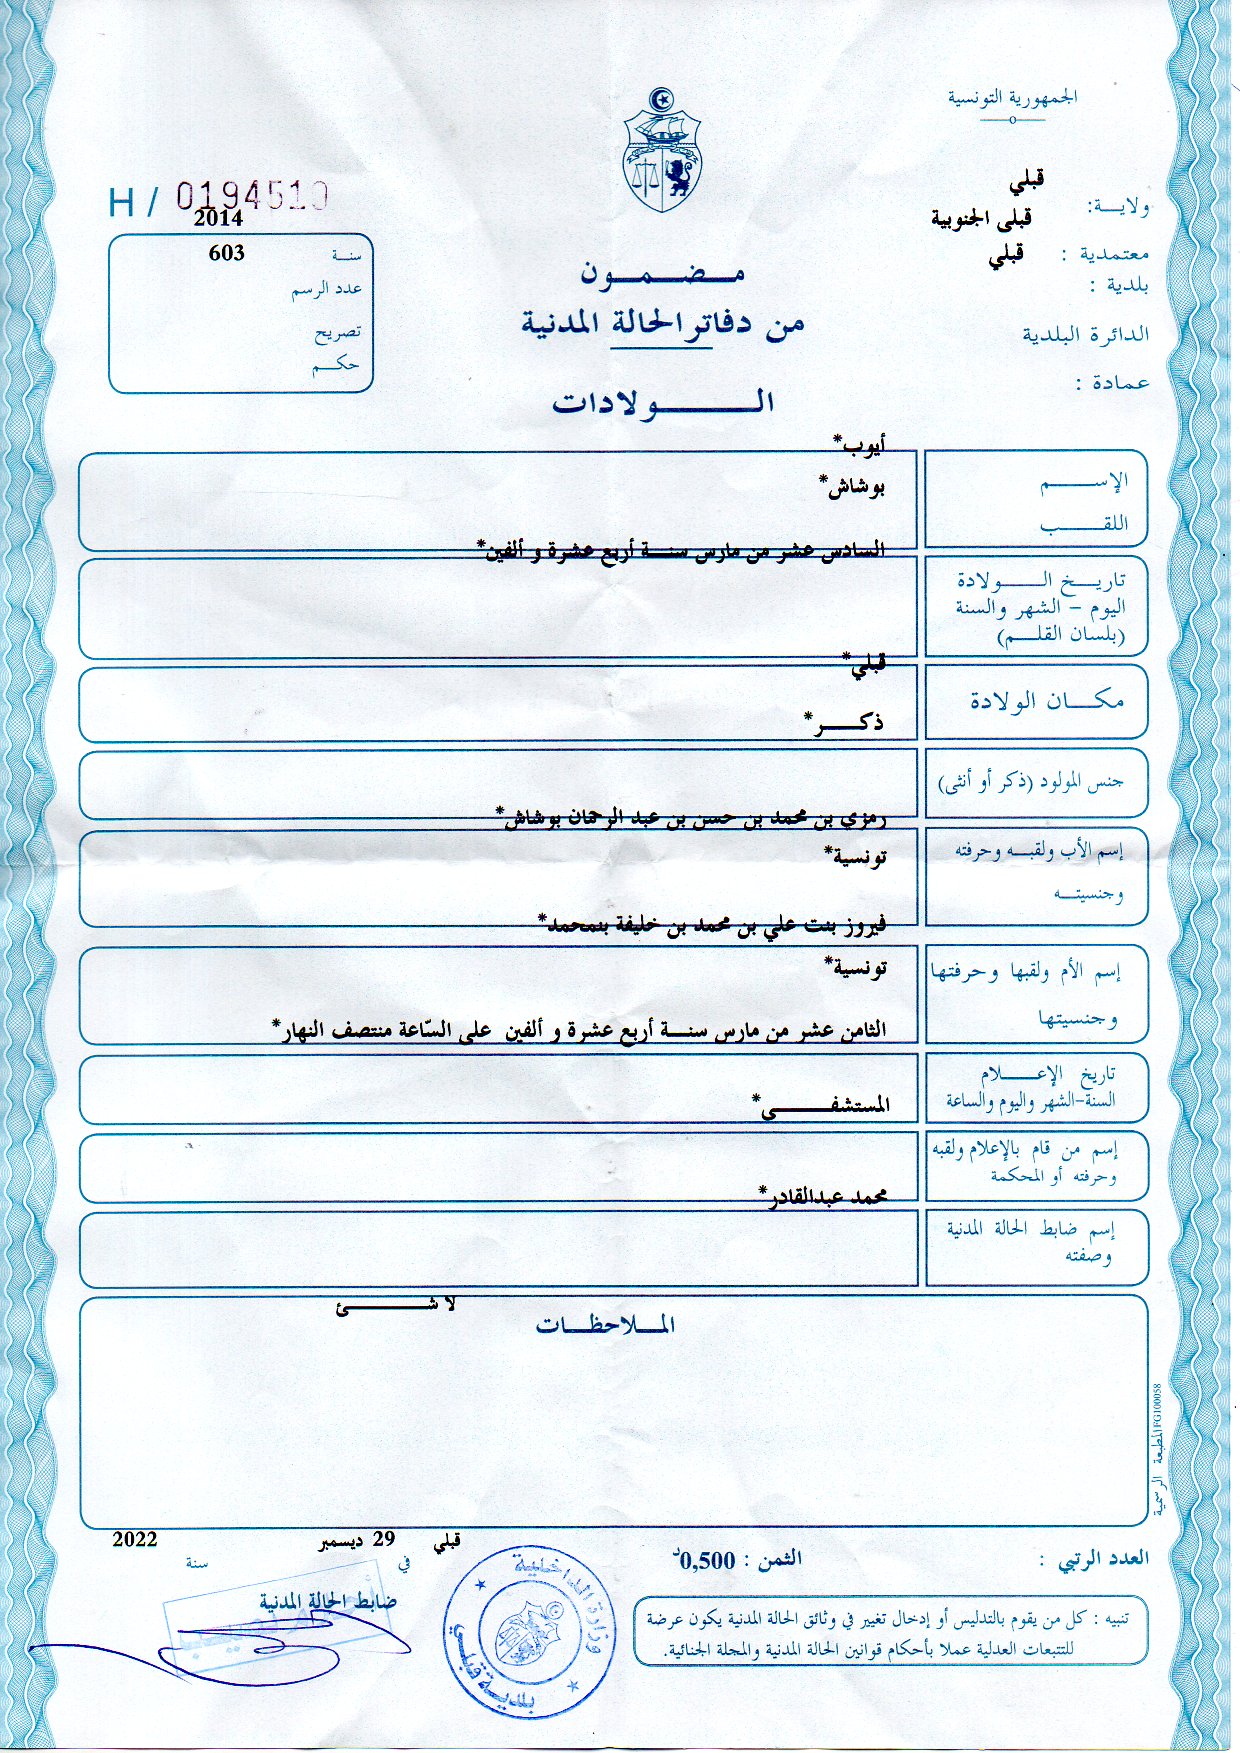 الجمهورية التونسية
H / 0194510
2014
قبلي
ولايــة:
قبلى الجنوبية
معتمدية :
قبلي
بلدية :
الدائرة البلدية
عمادة :
603
سنــة
عدد الرسم
تصريح
حكــم
مـضـمـون
من دفاتر الحالة المدنية
الـــولادات
أيوب*
الإســـم
بوشاش*
اللقـــب
السادس عشر من مارس سنــة أربع عشرة و ألفين*
تاريــخ الـــولادة
اليوم – الشهر والسنة
(بلسان القلــم)
قبلي*
مكــان الولادة
ذكــر*
جنس المولود (ذكر أو أنثى)
رمزي بن محمد بن حسن بن عبد الرحمان بوشاش*
إسم الأب ولقبــه وحرفته
تونسية*
وجنسيتــه
فيروز بنت علي بن محمد بن خليفة بنمحمد*
إسم الأم ولقبها وحرفتها
تونسية*
وجنسيتها
الثامن عشر من مارس سنــة أربع عشرة و ألفين على السّاعة منتصف النهار*
تاريخ الإعــلام
السنة-الشهر واليوم والساعة
المستشفــى*
إسم من قام بالإعلام ولقبه
وحرفته أو المحكمة
محمد عبدالقادر*
إسم ضابط الحالة المدنية
وصفته
لا شــئ
المــلاحظــات
المطبعة الرسمية FG100058
قبلي 29 ديسمبر 2022
في سنة
العدد الرتبي :
الثمن : 0,500د
ضابط الحالة المدنية
وزارة الداخلية
بلدية قبلي
تنبيه : كل من يقوم بالتدليس أو إدخال تغيير في وثائق الحالة المدنية يكون عرضة
للتتبعات العدلية عملا بأحكام قوانين الحالة المدنية والمجلة الجنائية.